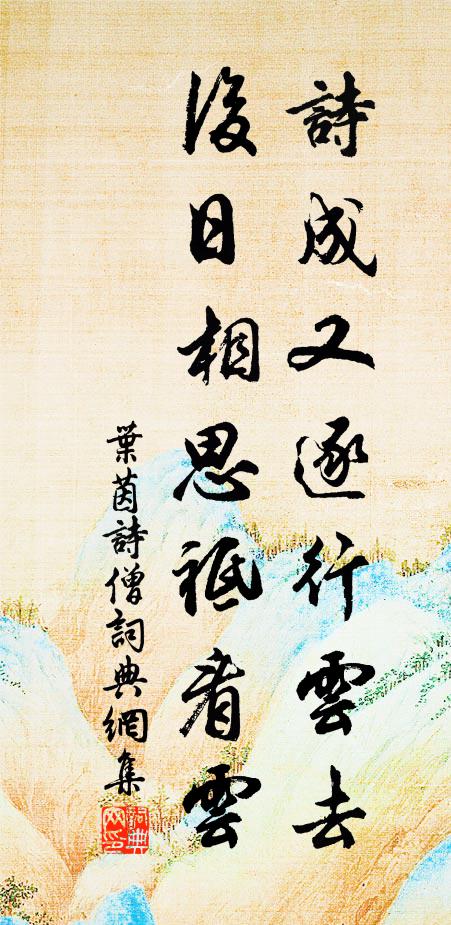 詩成又逐行雲去
後日相思祗看雲
葉茵詩僧詞典網集
詞典網印